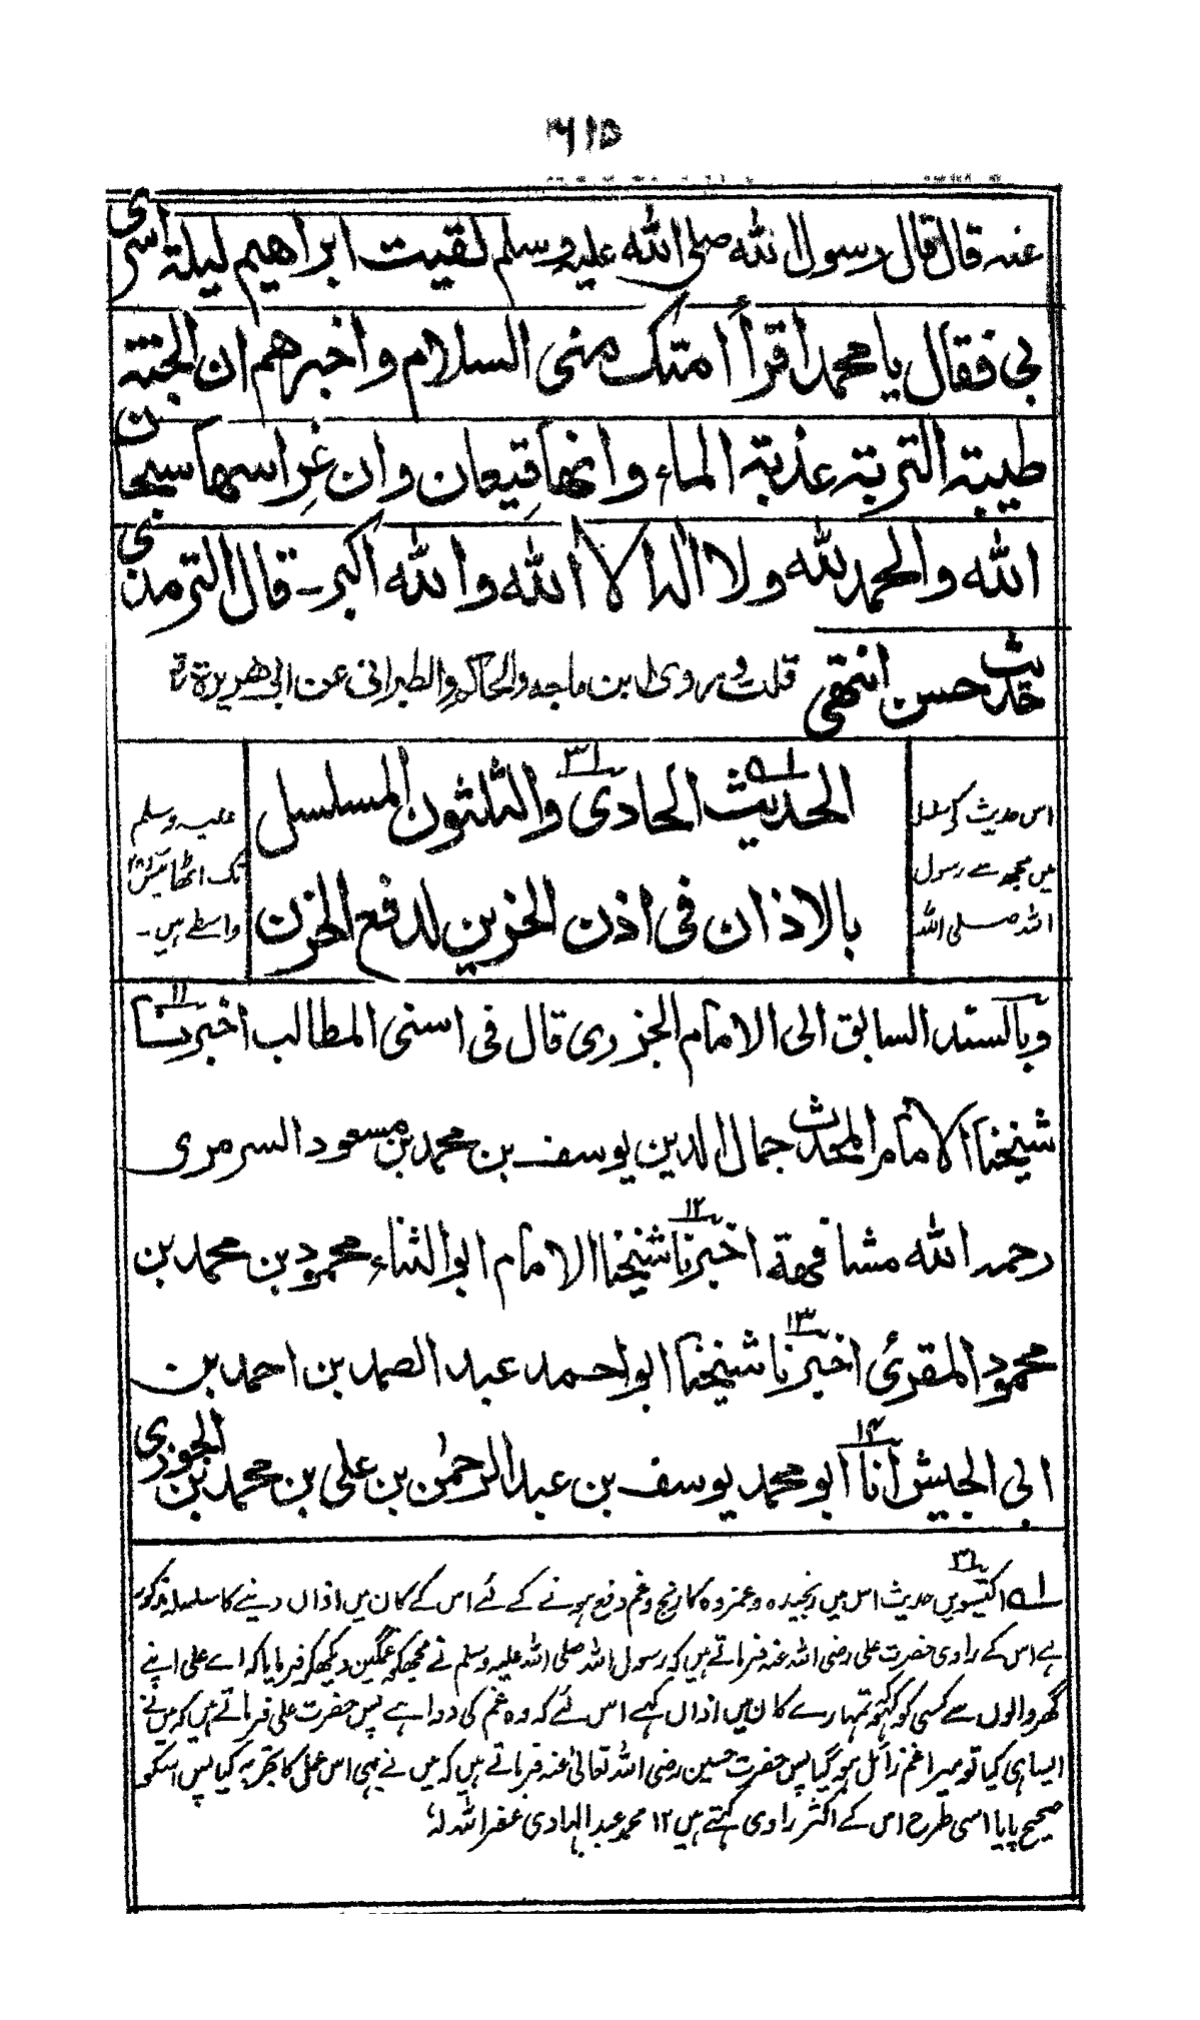 ۲۱۵
عنہ قال قال رسول اللہ صلی اللہ علیہ وسلم لقیت ابراھیم لیلۃ اسری
بی فقال یا محمد اقرأ امتک منی السلام واخبرھم ان الجنۃ
طیبۃ التربۃ عذبۃ الماء وانھا قِیعان وان غِراسھا سبحان
اللہ والحمد للہ ولا الہ الا اللہ واللہ اکبر۔ قال الترمذی
حدیث حسن انتھی قلت وروی ابن ماجہ والحاکم والطبرانی عن ابی ھریرۃ
الحدیث الحادی والثلثون المسلسل
بالاذان فی اذن الحزین لدفع الحزن
اس حدیث کے سلسلہ
میں مجھ سے رسول
اللہ صلی اللہ
علیہ وسلم
تک اٹھائیس
واسطے ہیں۔
وبالسند السابق الی الامام الجزری قال فی اسنی المطالب اخبرنا
شیخنا الامام المحدث جمال الدین یوسف بن محمد بن مسعود السرمری
رحمہ اللہ مشافھۃ اخبرنا شیخنا الامام ابو الثناء محمود بن محمد بن
محمود المقرئ اخبرنا شیخنا ابو احمد عبد الصمد بن احمد بن
ابی الجیش أنا ابو محمد یوسف بن عبد الرحمٰن بن علی بن محمد بن الجوزی
۱ھ اکتیسویں حدیث اس میں رنجیدہ وغمزدہ کا رنج وغم دفع ہونے کے لئے اس کے کان میں اذاں دینے کا سلسلہ مذکور
ہے اس کے راوی حضرت علی رضی اللہ عنہ فرماتے ہیں کہ رسول اللہ صلی اللہ علیہ وسلم نے مجھکو غمگین دیکھکر فرمایا کہ اے علی اپنے
گھر والوں سے کسی کو کہو تمہارے کان میں اذاں کہے اس لئے کہ وہ غم کی دوا ہے پس حضرت علی فرماتے ہیں کہ میں نے
ایسا ہی کیا تو میرا غم زائل ہو گیا پس حضرت حسین رضی اللہ تعالیٰ عنہ فرماتے ہیں کہ میں نے بھی اس عمل کا تجربہ کیا پس اسکو
صحیح پایا اسی طرح اس کے اکثر راوی کہتے ہیں ۱۲ محمد عبد الہادی غفر اللہ لہٗ